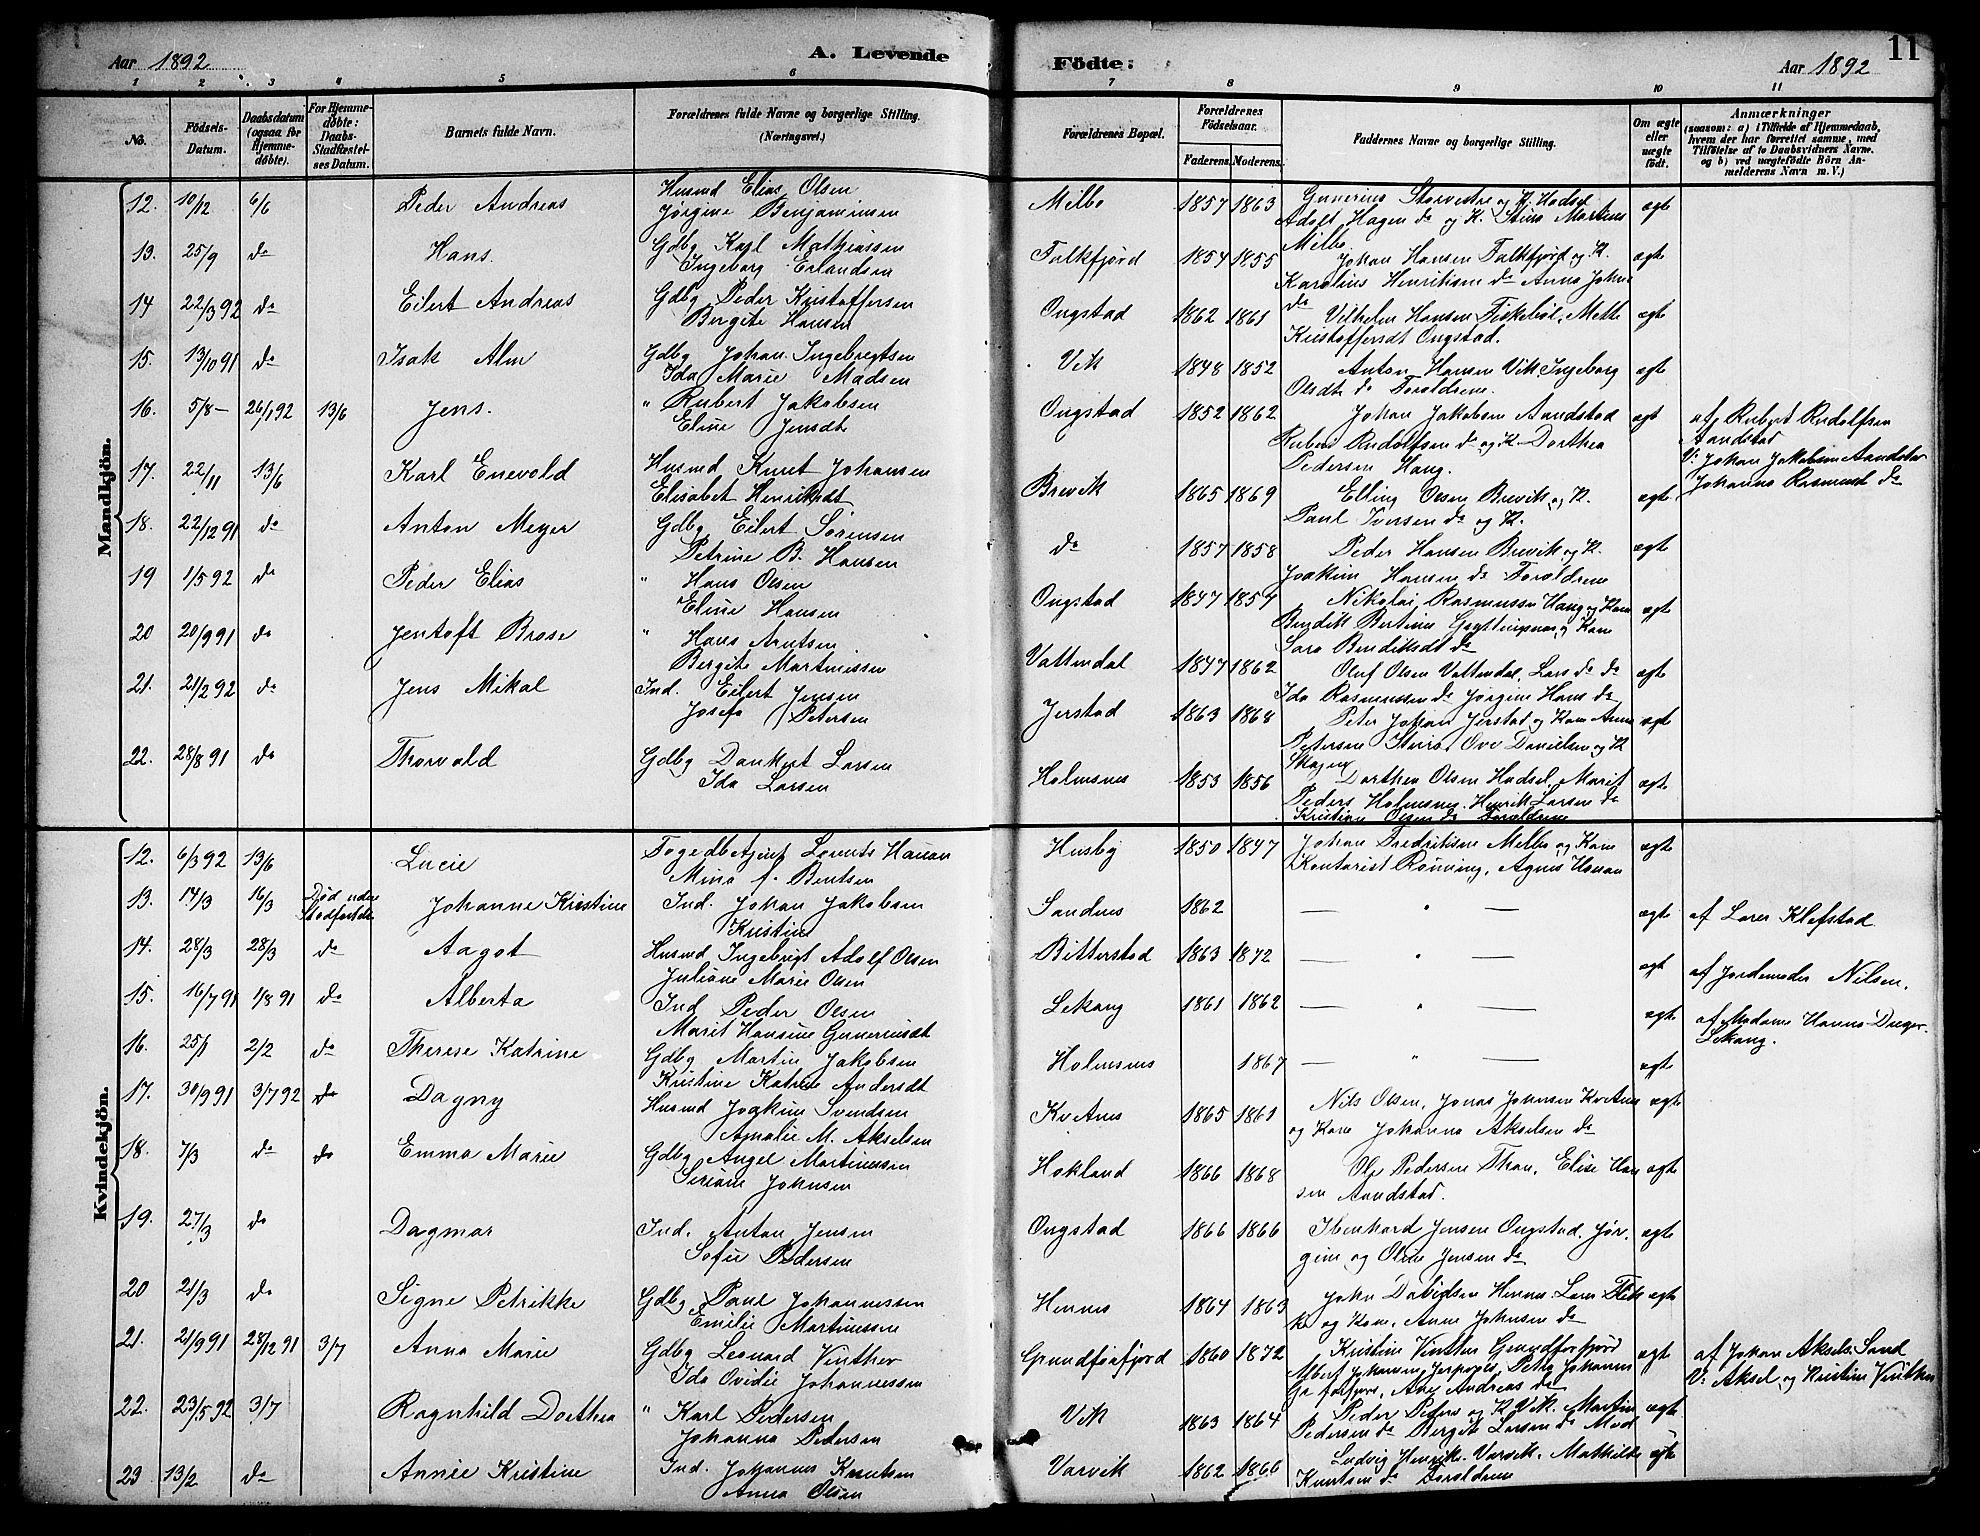 Aar 1892 A. Levende Födte: Aar 1892 11
1 2 3 4 5 6 7 8 9 10 11
No. Födsels-Datum. Daabsdatum (ogsaa for Hjemme-döbte). For Hjemme-döbte: Daabs-Stadfæstel-ses Datum. Barnets fulde Navn. Forældrenes fulde Navne og borgerlige Stilling. (Næringsvei.) Forældrenes Bopæl. Forældrenes Födselsaar. Faderens. Moderens. Faddernes Navne og borgerlige Stilling. Om ægte eller uægte födt. Anmærkninger (saasom: a) i Tilfælde af Hjemmedaab, hvem der har forrettet samme, med Tilföielse af to Daabsvidners Navne. og b) ved uægtefödte Börn An-melderens Navn m. V.)
Mandkjön.
12. 10/12 6/6 Peder Andreas Husmd Elias Olsen Melbo 1857 1863 Gunerius Storvestre og K. Hadsel ægte
Jørgine Benjaminsen Adolf Hagen do og K. Stina Martins
Melbo
13. 25/9 do Hans. Gdbg Karl Mathiassen Falkfjord 1854 1855 Johan Hansen Falkfjord og K. ægte
Ingeborg Erlandsen Karolius Henriksen do Anna Johns
do
14 22/3 92 do Eilert Andreas Gdbg Peder Kristoffersen Ongstad 1862 1861 Vilhelm Hansen Fiskebøl, Mette ægte
Bergite Hansen Kristoffersdt Ongstad.
15. 13/10 91 do Isak Alm Gdbg Johan Ingebregtsen Vik 1848 1852 Anton Hansen Vik, Ingeborg ægte
Ida Marie Madsen Olsdt do Forældrene.
16. 5/8 – 26/1 92 13/6 Jens. " Rubert Jakobsen Ongstad 1852 1862 Johan Jakobsen Aandstad ægt af Rubert Rudolfsen
Eline Jensdt Rubert Rudolfsen do og K. Dorthea Aandstad
Pedersen Haug. V. Johan Jakobsen Aandstad
Johanna Rasmusdt do
17. 22/11 13/6 Karl Enevold Husmd Knut Johansen Brevik 1865 1869 Elling Olsen Brevik og K. ægte
Elisabet Henriksdt Paul Iversen do og K.
18. 22/12 91 do Anton Meyer Gdbg Eilert Sørensen do 1857 1858 Peder Hansen Brevik og K. ægte
Petrine B. Hansen Joakim Hansen do Forældrene
19 1/5 92 do Peder Elias " Hans Olsen Ongstad 1847 1854 Nikolai Rasmussen Haug og Kone ægte
Eline Hansen Bendikt Bertins og Kone
Sara Bendiktsdt do
20 20/9 91 do Jentoft Brose " Hans Arntsen Vattendal 1847 1862 Oluf Olsen Vattendal, Lars do do ægte
Bergite Martinussen Ida Rasmussen do Jørgine Hans do
21. 21/2 92 do Jens Mikal Ind. Eilert Jensen Jerstad 1863 1868 Peter Johan Jerstad og Kone Anne ægte
Josefa Petersen Petersen Steiro Ove Danielsen og K
Skagen
22. 28/8 91 do Thorvald Gdbg Dankert Larsen Holmsnes 1853 1856 Dorthea Olsen Hadsel, Marit ægte
Ida Larsen Peders Holmsnes, Henrik Larsen do
Kristine Olsen do Forældrene
Kvindekjön.
12. 6/3 92 13/6 Lucie Fogedbetjent Lorents Hanan Husby 1850 1847 Johan Fredriksen Melbo og Kone ægte
Mina f. Bentsen Kontorist Rønning, Agnes Hanan
13. 14/3 16/3 Død uden Stadfæstelse Johanne Kristine Ind. Johan Jakobsen Sandnes 1862 — " — ægte af Klefstad
Kristine
14. 28/3 28/3 do Aagot Husmd Ingebrigt Adolf Olsen Bitterstad 1863 1872 — " — ægt af Jordemoder Nilsen.
Juliane Marie Olsen
15. 16/7 91 1/8 91 do Alberta Ind Peder Olsen Lekang 1861 1862 — " — ægte af Madame Hanna Dreyer
Marit Hansine Guneriusdt Lekang.
16. 25/1 2/2 do Therese Katrine Gdbg Martin Jakobsen Holmsnes 1867 — " — ægte
Kristine Katrine Andersdt
17. 30/9 91 3/7 92 do Dagny Husmd Joakim Svendsen Kvitnes 1865 1861 Nils Olsen, Jonas Johnsen Kvitnes ægte
Amalie M. Akselsen og Kone Johanna Akselsen do
18. 7/3 do do Emma Marie Gdbg Angel Martinussen Hokland 1866 1868 Ole Pedersen Elise Han ægte
Seriane Johnsen sen Aandstad.
19. 27/3 do Dagmar Ind. Anton Jensen Ongstad 1866 1866 Ibenhard Jensen Ongstad, Jør ægte
Sofie Pedersen gine og Oline Jensen do
20 21/3 do Signe Petrikke Gdbg Paul Johannessen Hennes 1864 1863 John Davidsen Hennes Flik ægte
Emilie Martinussen ke og Kone, Anne Johnsen do
21. 21/9 91 28/12 91 3/7 Anna Marie Gdbg Leonard Vinther Grundforfjord 1860 1872 Kristine Vinther Grundforfjord ægte af Johan Aksels. Sand
Ida Ovidie Johannessen Albert Johansen Petra Johansen V. Aksel og Kristine Vinther
Gr forfjord, Andreas do
22. 23/5 92 3/7 Ragnhild Dorthea " Karl Pedersen Vik 1863 1864 Peder Peders og K Vik. Martin ægte
Johanna Pedersen Pedersen do Bergit Larsen do
23 13/2 do Annie Kristine Ind. Johannes Knutsen Varvik 1862 1866 Ludvig Henrik. Varvik. Mathilde ægte
Anna Olsen Knutsen do Forældrene